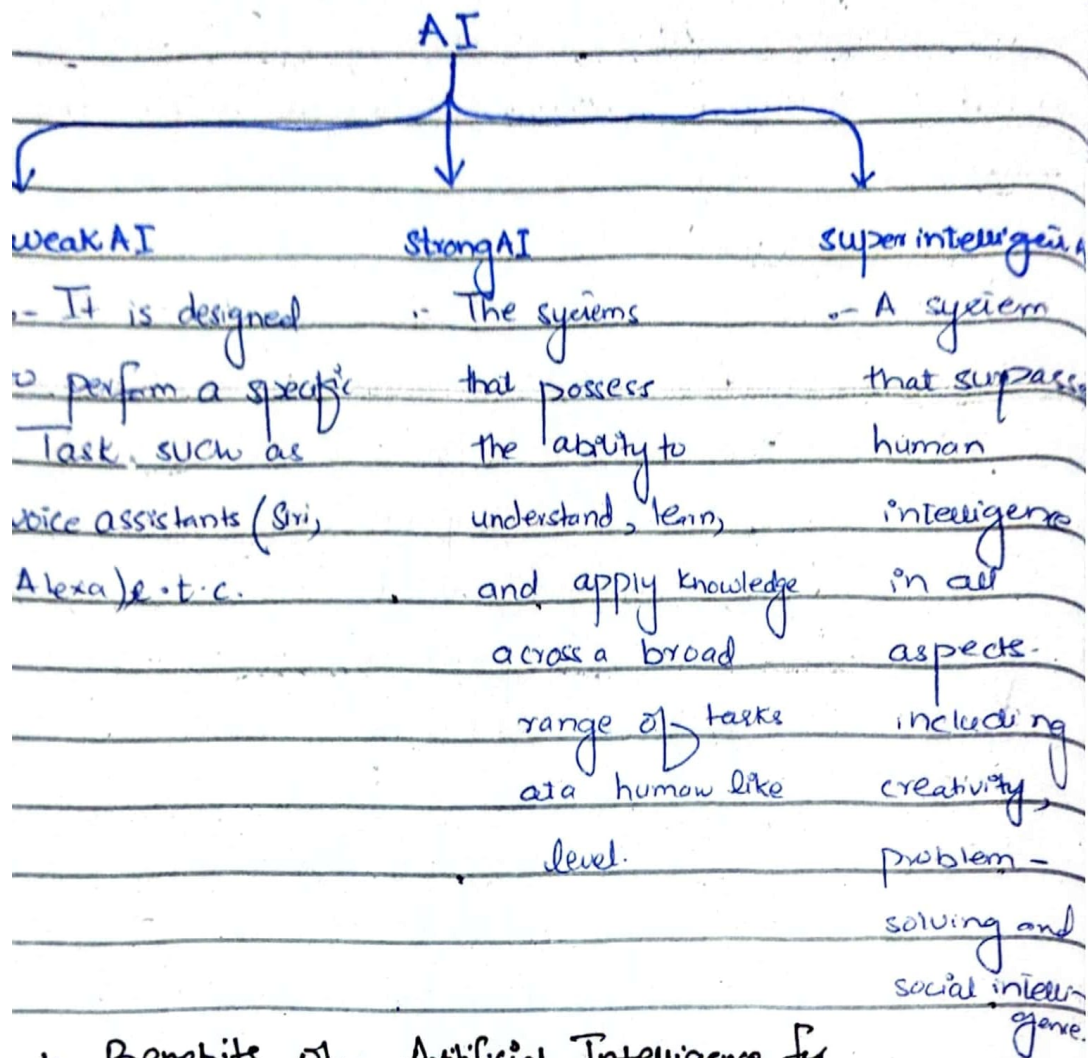 AI
weak AI
:- It is designed
to perform a specific
Task such as
voice assistants (Siri,
Alexa) e.t.c.
Strong AI
:- The systems
that possess
the ability to
understand, learn,
and apply knowledge
across a broad
range of tasks
at a human like
level.
super intelligen
:- A system
that surpass
human
intelligence
in all
aspects.
including
creativity,
problem -
solving and
social intelli-
gence.
Benefits of Artificial Intelligence for